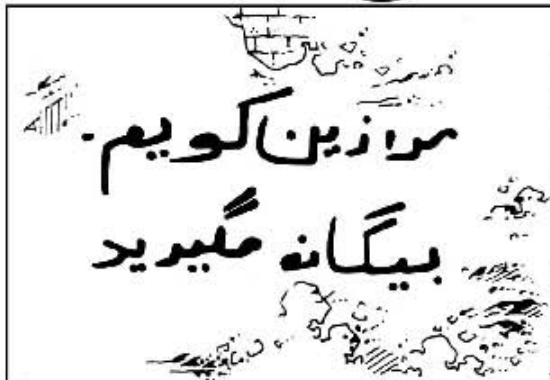 مرا زین کویم.
بیگانه مگیرید